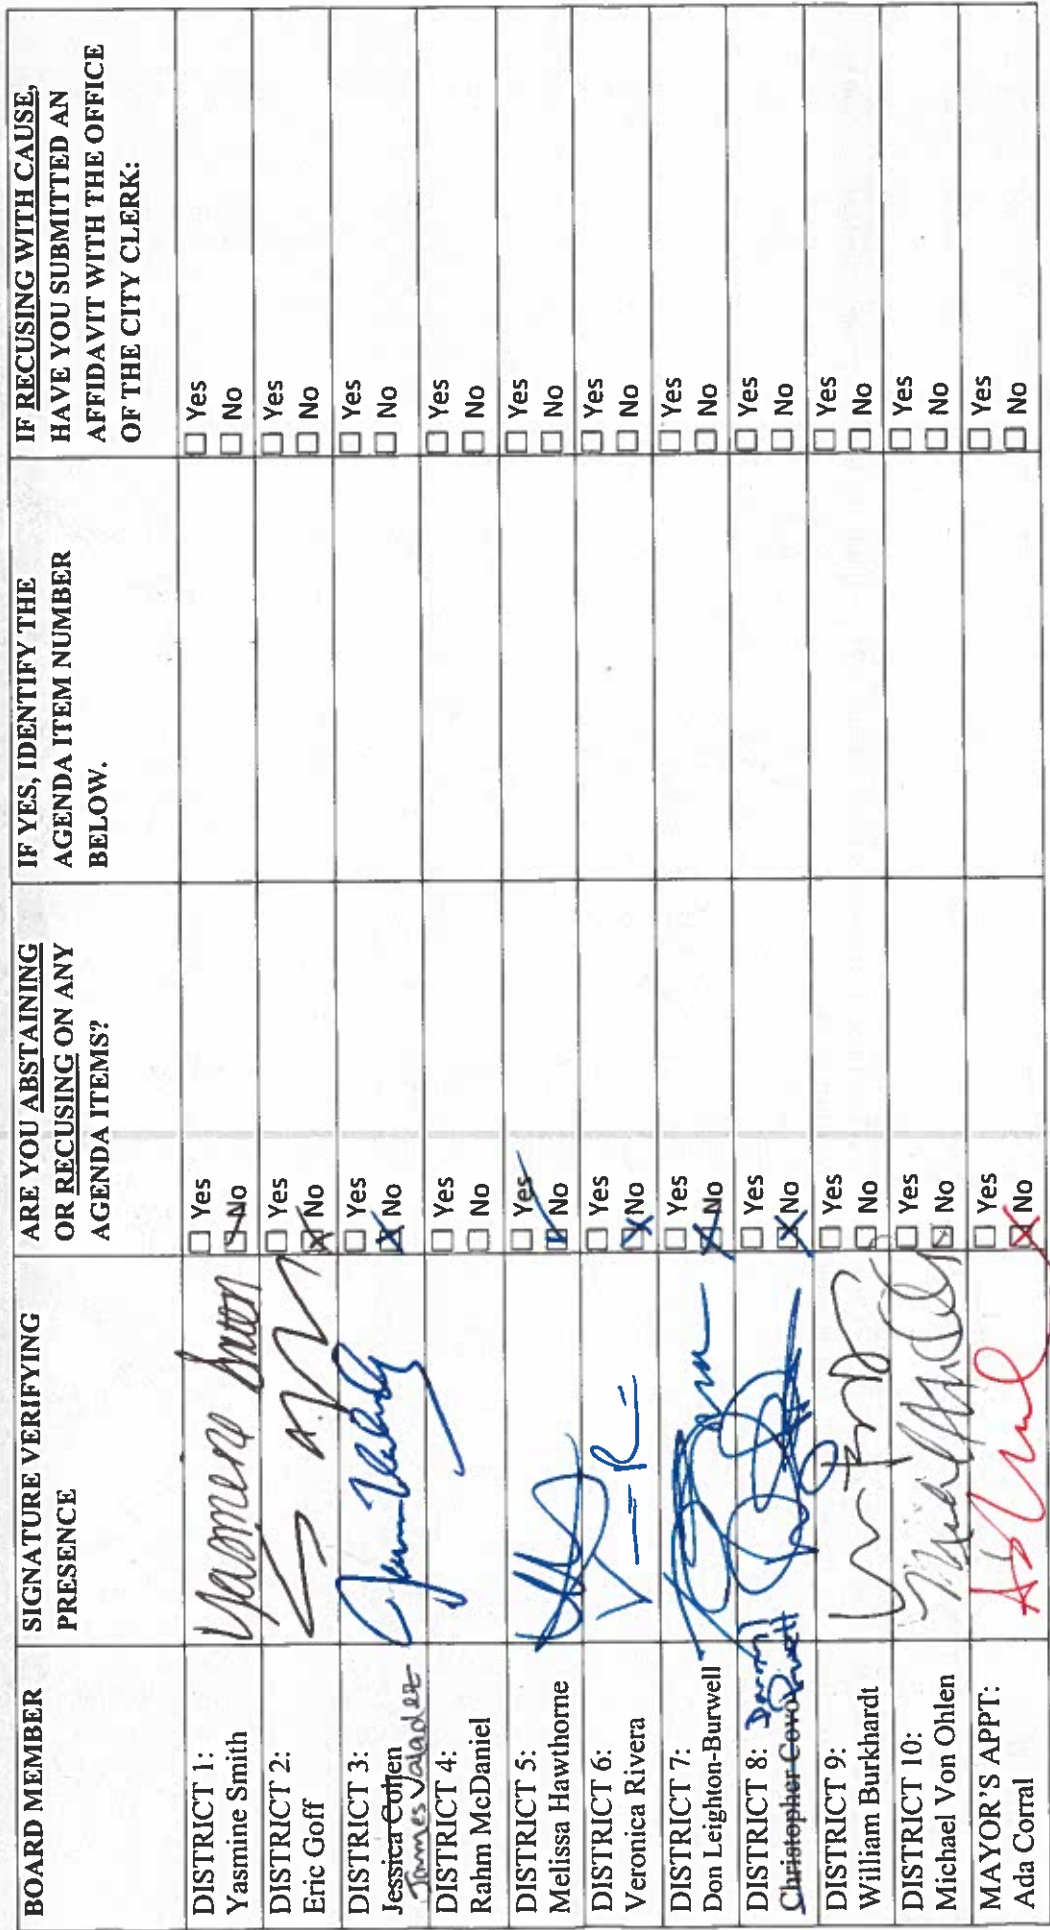 BOARD MEMBER
SIGNATURE VERIFYING
PRESENCE
ARE YOU ABSTAINING
OR RECUSING ON ANY
AGENDA ITEMS?
IF YES, IDENTIFY THE
AGENDA ITEM NUMBER
BELOW.
IF RECUSING WITH CAUSE,
HAVE YOU SUBMITTED AN
AFFIDAVIT WITH THE OFFICE
OF THE CITY CLERK:
DISTRICT 1:
Yasmine Smith
Yes
No
Yes
No
DISTRICT 2:
Eric Goff
Yes
No
Yes
No
DISTRICT 3:
Jessica Cohen
James Valadez
Yes
No
Yes
No
DISTRICT 4:
Rahm McDaniel
Yes
No
Yes
No
DISTRICT 5:
Melissa Hawthorne
Yes
No
Yes
No
DISTRICT 6:
Veronica Rivera
Yes
No
Yes
No
DISTRICT 7:
Don Leighton-Burwell
Yes
No
Yes
No
DISTRICT 8:
Christopher Covo
Yes
No
Yes
No
DISTRICT 9:
William Burkhardt
Yes
No
Yes
No
DISTRICT 10:
Michael Von Ohlen
Yes
No
Yes
No
MAYOR'S APPT:
Ada Corral
Yes
No
Yes
No